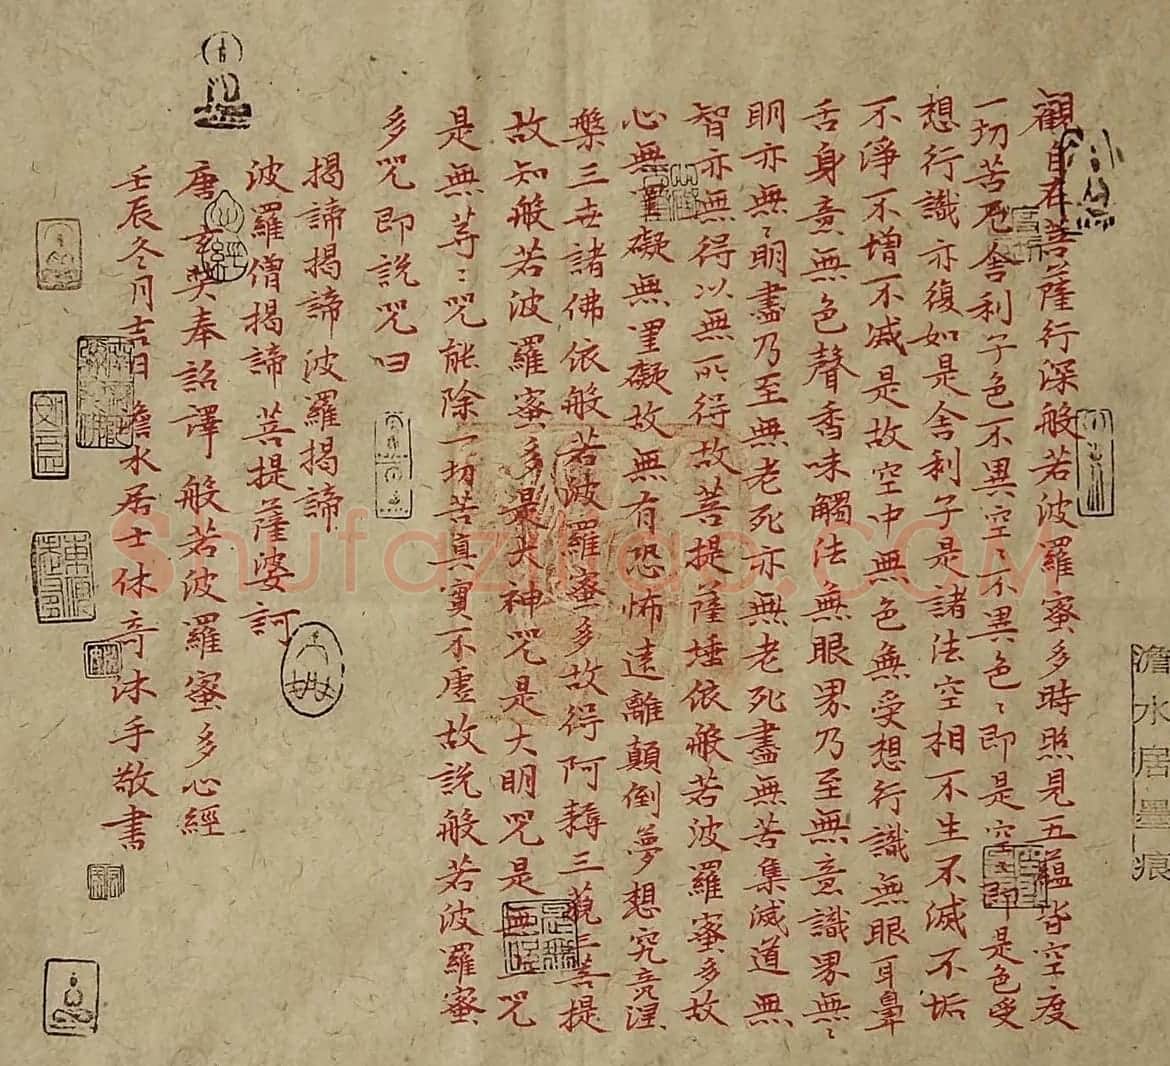 澹水居墨痕
觀自在菩薩行深般若波羅蜜多時照見五蘊皆空度
一切苦厄舍利子色不異空〻不異色〻即是空〻即是色受
想行識亦復如是舍利子是諸法空相不生不滅不垢
不淨不增不減是故空中無色無受想行識無眼耳鼻
舌身意無色聲香味觸法無眼界乃至無意識界無〻
明亦無〻明盡乃至無老死亦無老死盡無苦集滅道無
智亦無得以無所得故菩提薩埵依般若波羅蜜多故
心無罣礙無罣礙故無有恐怖遠離顛倒夢想究竟涅
槃三世諸佛依般若波羅蜜多故得阿耨三藐三菩提
故知般若波羅蜜多是大神咒是大明咒是無上咒
是無等〻咒能除一切苦真實不虛故說般若波羅蜜
多咒即說咒曰
揭諦揭諦波羅揭諦
波羅僧揭諦 菩提薩婆訶
唐玄奘奉詔譯 般若波羅蜜多心經
壬辰冬月吉日 澹水居士休奇沐手敬書
心經
Shufaziliao.COM